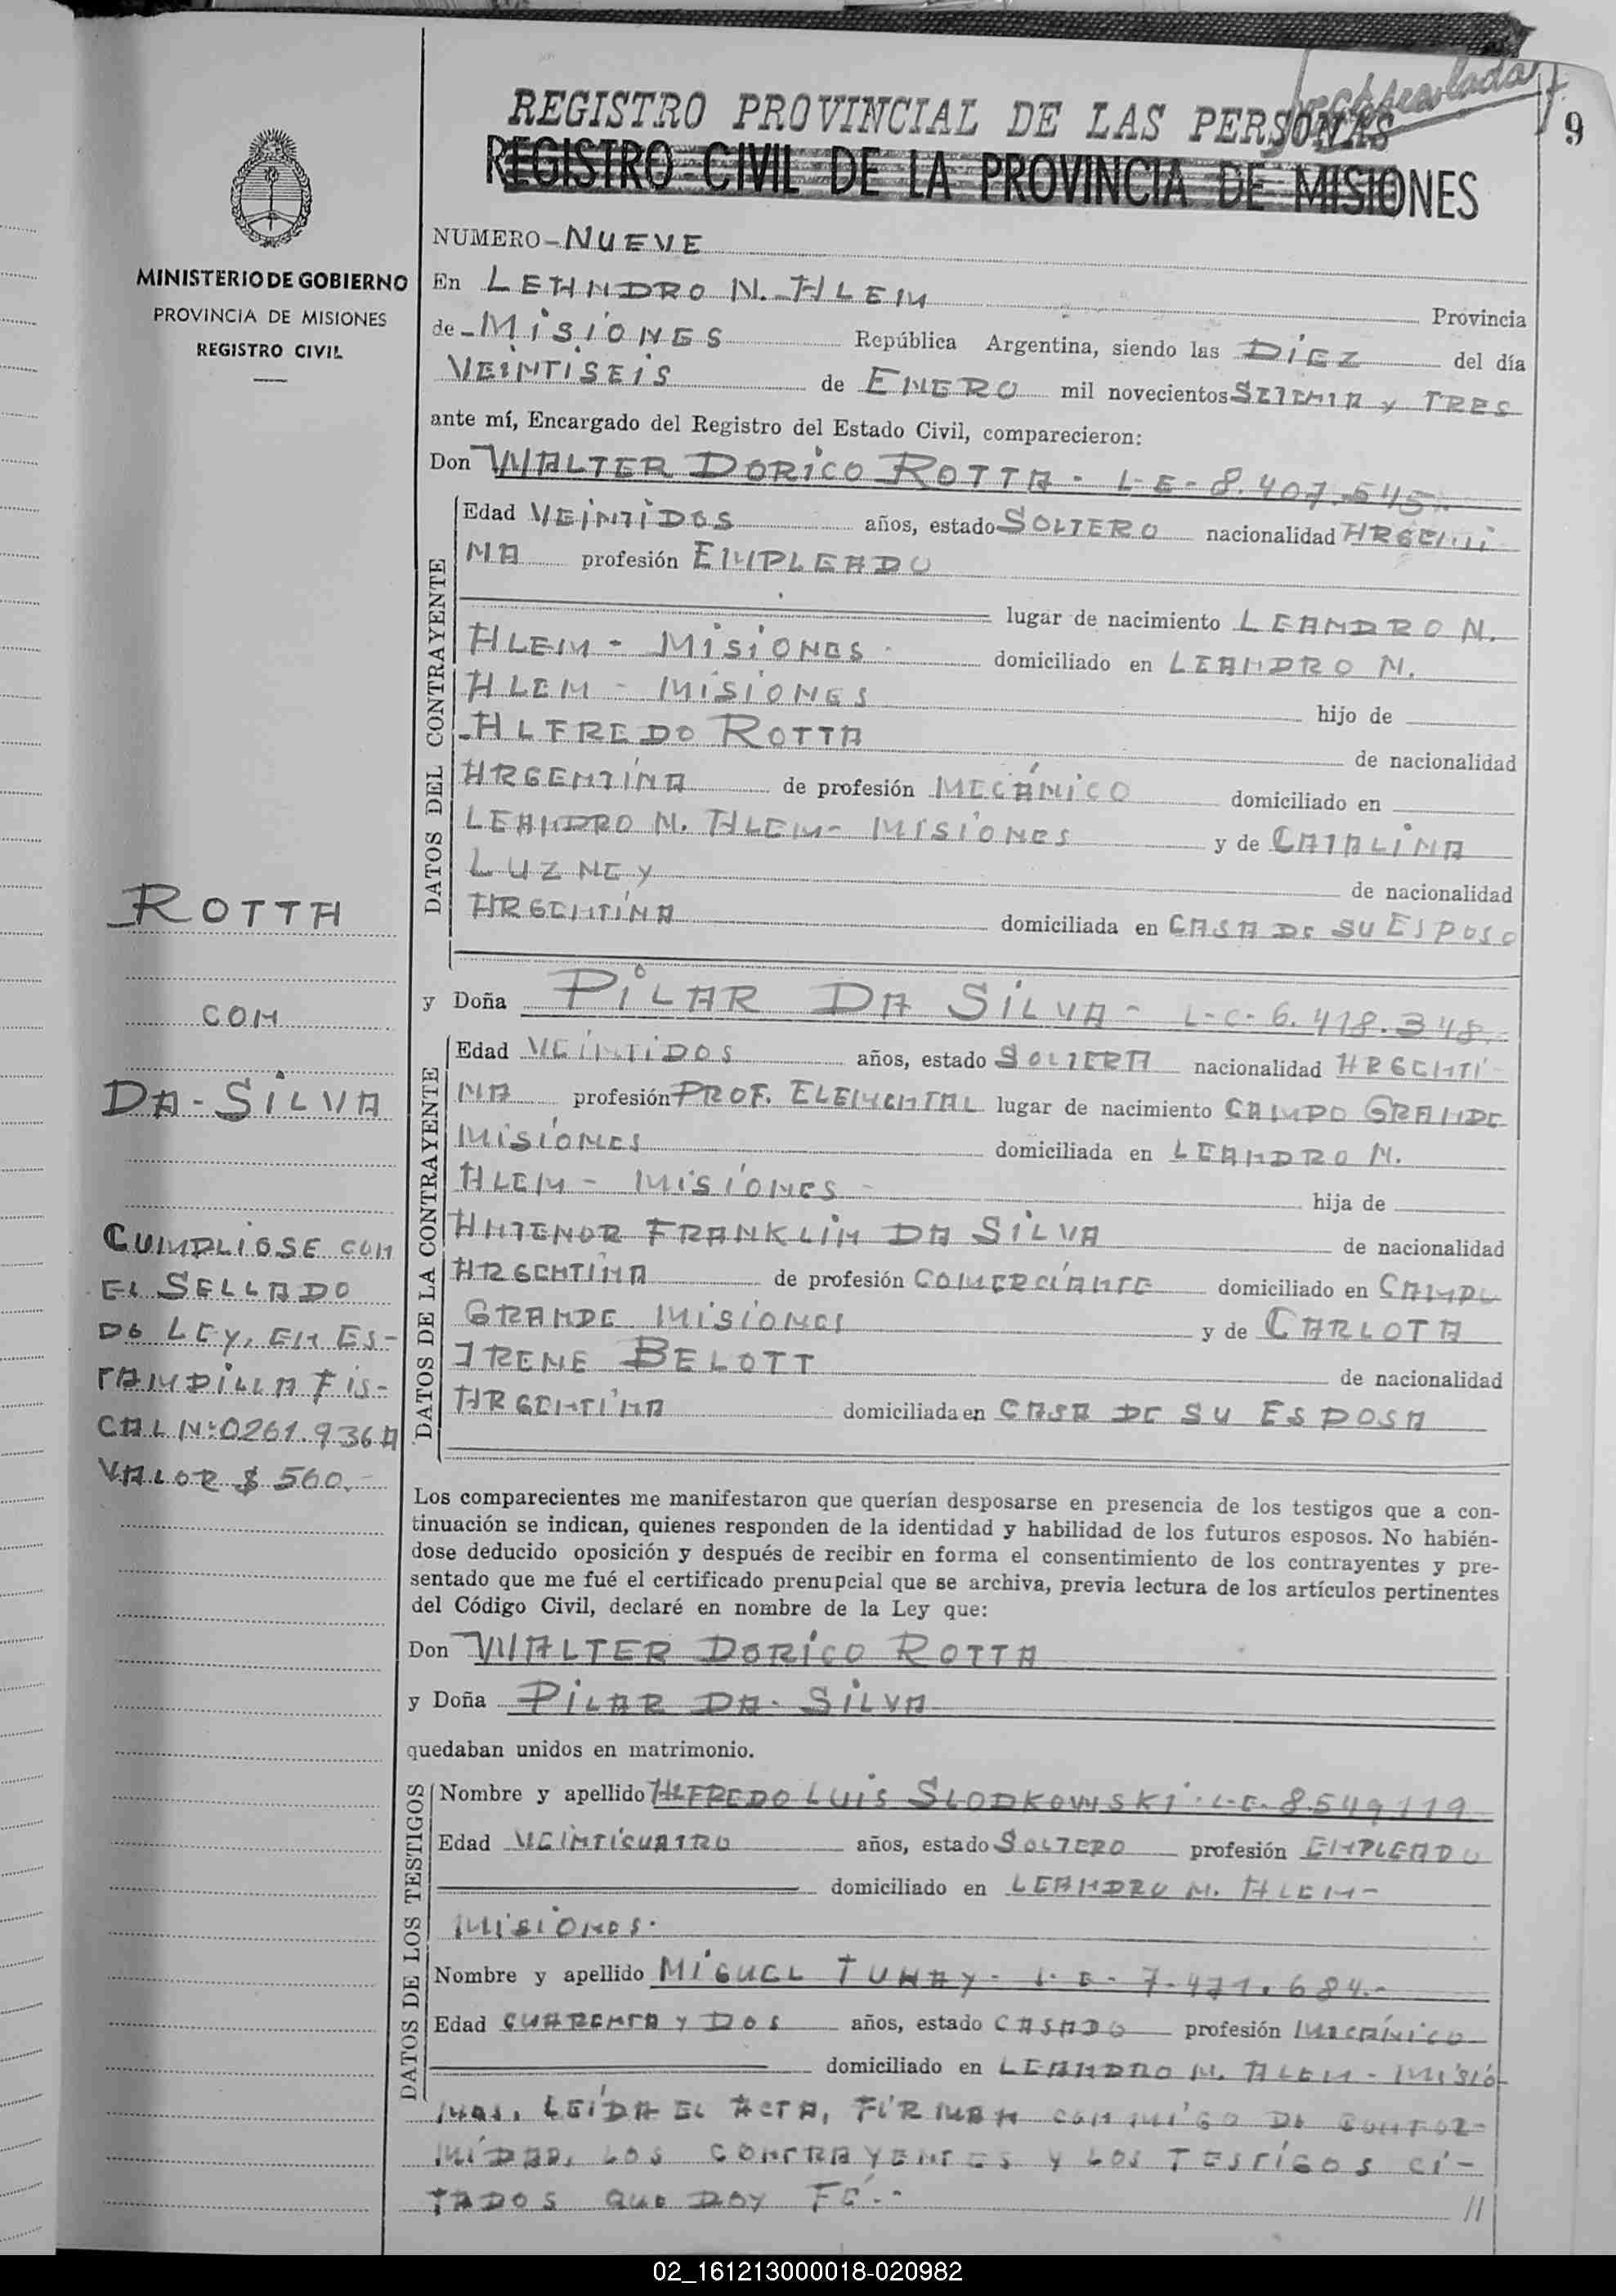 9
REGISTRO PROVINCIAL DE LAS PERSONAS
REGISTRO CIVIL DE LA PROVINCIA DE MISIONES
MINISTERIO DE GOBIERNO
PROVINCIA DE MISIONES
REGISTRO CIVIL
NUMERO - NUEVE
En LEANDRO N. ALEM Provincia
de - MISIONES República Argentina, siendo las DIEZ del día
VEINTISEIS de ENERO mil novecientos SETENTA Y TRES
ante mí, Encargado del Registro del Estado Civil, comparecieron:
Don WALTER DORICO ROTTA - L-E-8.407.545.-
DATOS DEL CONTRAYENTE
Edad VEINTIDOS años, estado SOLTERO nacionalidad ARGENTI
NA profesión EMPLEADO
lugar de nacimiento LEANDRO N.
ALEM - MISIONES - domiciliado en LEANDRO N.
ALEM - MISIONES hijo de
ALFREDO ROTTA de nacionalidad
ARGENTINA de profesión MECÁNICO domiciliado en
LEANDRO N. ALEM - MISIONES y de CATALINA
LUZNEY de nacionalidad
ARGENTINA domiciliada en CASA DE SU ESPOSO
ROTTA
CON
DA-SILVA
y Doña PILAR DA SILVA - L-C-6.418.348.
DATOS DE LA CONTRAYENTE
Edad VEINTIDOS años, estado SOLTERA nacionalidad ARGENTI-
NA profesión PROF. ELEMENTAL lugar de nacimiento CAMPO GRANDE
MISIONES domiciliada en LEANDRO N.
ALEM - MISIONES - hija de
ANTENOR FRANKLIN DA SILVA de nacionalidad
ARGENTINA de profesión COMERCIANTE domiciliado en CAMPO
GRANDE MISIONES y de CARLOTA
IRENE BELOTT de nacionalidad
ARGENTINA domiciliada en CASA DE SU ESPOSA
CUMPLIOSE CON
EL SELLADO
DE LEY, EN ES-
TAMPILLA FIS-
CAL Nº:0261.936A
VALOR $ 560.-
Los comparecientes me manifestaron que querían desposarse en presencia de los testigos que a con-
tinuación se indican, quienes responden de la identidad y habilidad de los futuros esposos. No habién-
dose deducido oposición y después de recibir en forma el consentimiento de los contrayentes y pre-
sentado que me fué el certificado prenupcial que se archiva, previa lectura de los artículos pertinentes
del Código Civil, declaré en nombre de la Ley que:
Don WALTER DORICO ROTTA
y Doña PILAR DA-SILVA
quedaban unidos en matrimonio.
DATOS DE LOS TESTIGOS
Nombre y apellido ALFREDO LUIS SLODKOWSKI - L-E-8.549.119
Edad VEINTICUATRO años, estado SOLTERO profesión EMPLEADO
domiciliado en LEANDRO N. ALEM -
MISIONES.
Nombre y apellido MIGUEL TUNAY - L-E-7.471.684.-
Edad CUARENTA Y DOS años, estado CASADO profesión MECÁNICO
domiciliado en LEANDRO N. ALEM - MISIO-
NES. LEÍDA EL ACTA, FIRMAN CONMIGO DE CONFOR-
MIDAD, LOS CONTRAYENTES Y LOS TESTIGOS CI-
TADOS QUE DOY FÉ.-
//
02_161213000018-020982